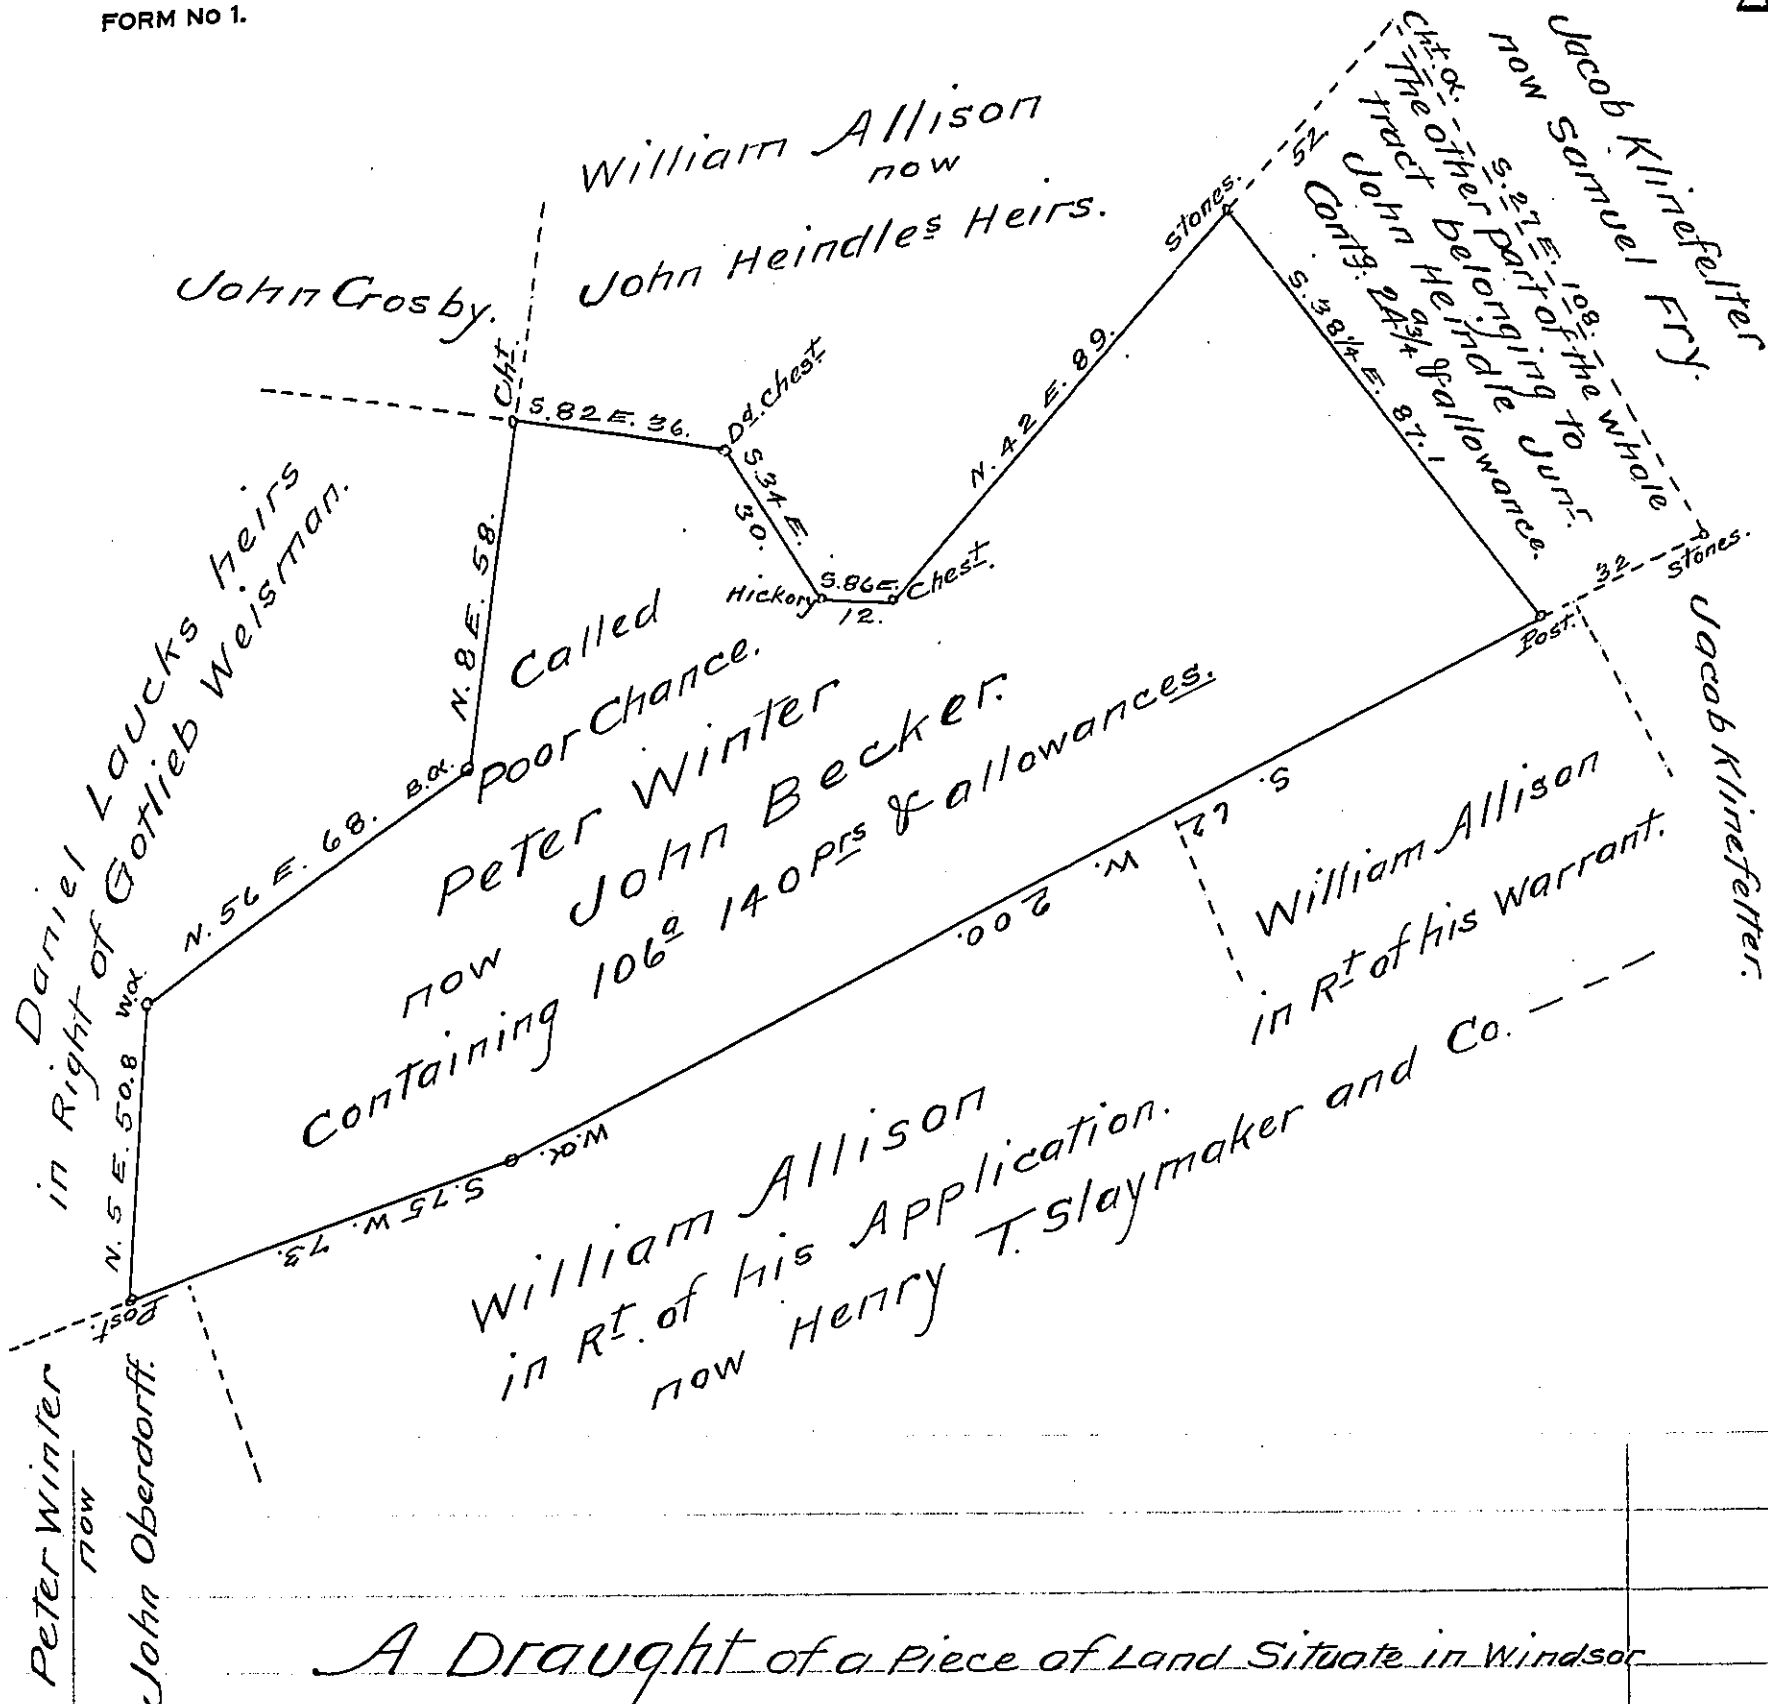 FORM No 1.
William Allison
now
John Heindles Heirs.
John Crosby.
Jacob Klinefelter
now Samuel Fry.
Cht α.
S. 27 E. 108.
The other part of the whole
tract belonging to
John Heindle Junr.
Contg. 24a 3/4 & allowance.
52
Stones.
S. 38 1/4 E. 87.1
N. 42 E. 89.
Cht.
S. 82 E. 36.
Dd. Chest
S. 34 E.
30.
Hickory
S. 86 E.
12.
Chest.
32
Stones.
Post.
Jacob Klinefelter.
Daniel Laucks heirs
in Right of Gotlieb Weisman.
N. 8 E. 58.
B.α.
N. 56 E. 68.
W.α.
N. 5 E. 50.8
Called
Poor Chance.
Peter Winter
now John Becker.
Containing 106a 140 Prs & allowances.
S. 62 W. 200.
W.α.
S. 75 W. 73.
Post.
William Allison
in Rt of his Warrant.
William Allison
in Rt. of his Application.
now Henry T. Slaymaker and Co.
Peter Winter
now
John Oberdorff.
A Draught of a Piece of Land Situate in Windsor